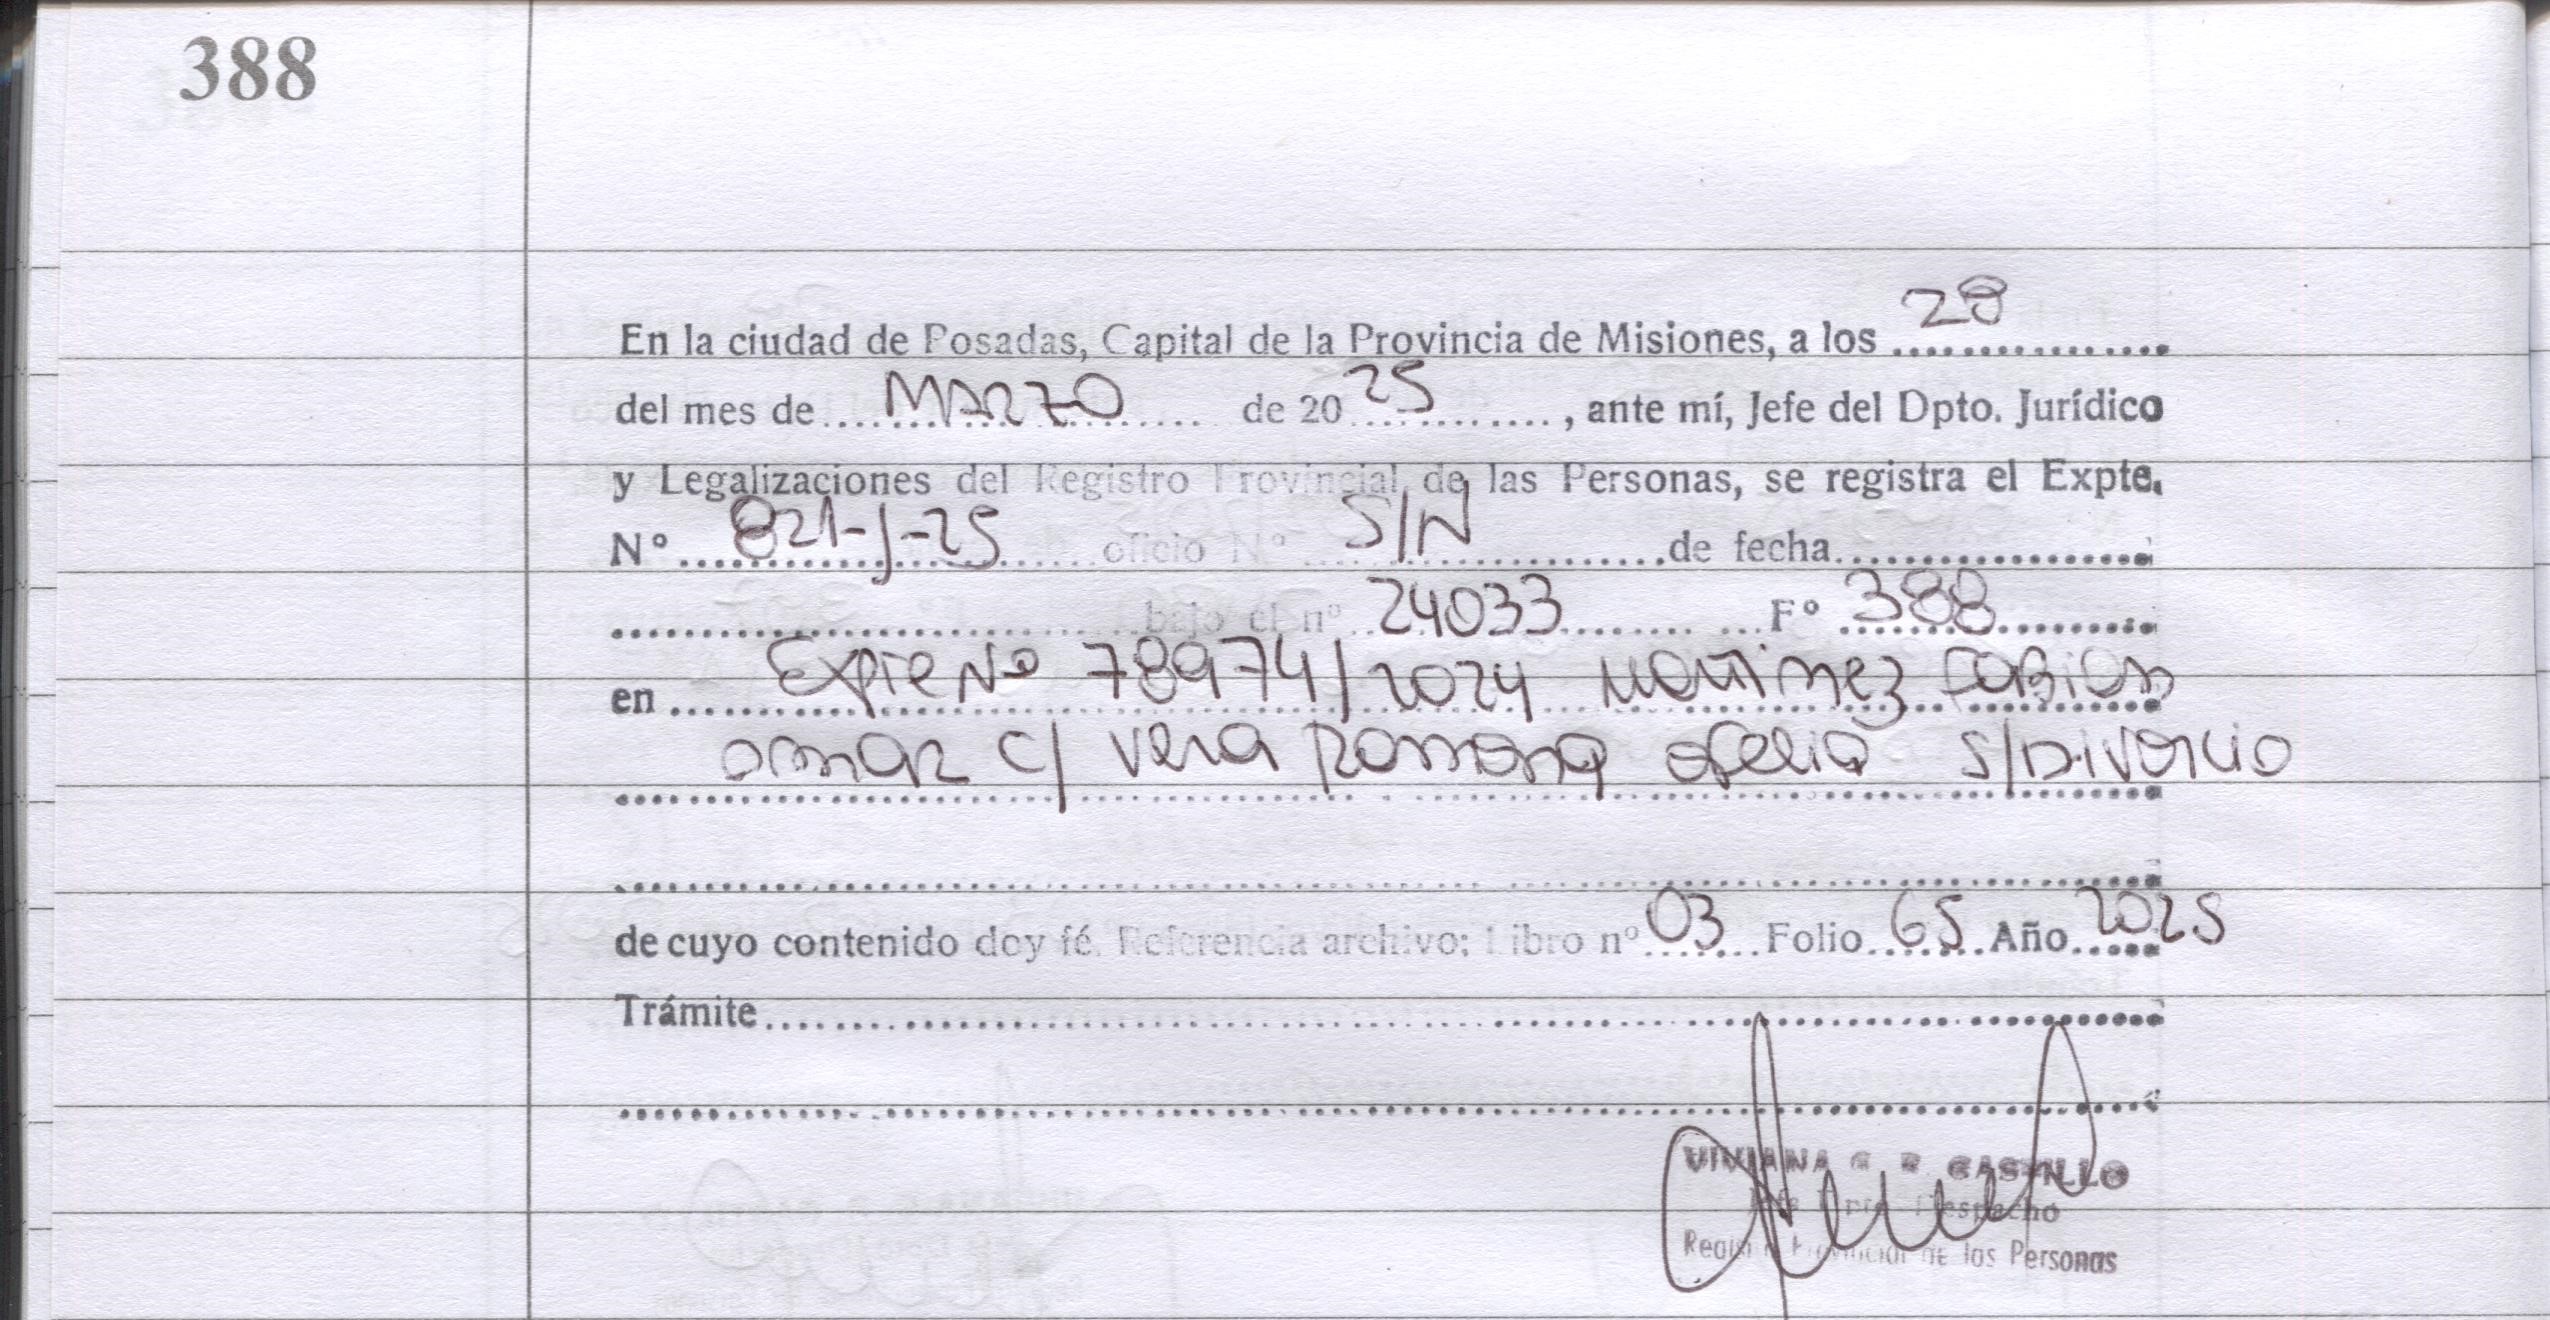 388
En la ciudad de Posadas, Capital de la Provincia de Misiones, a los 28
del mes de MARZO de 2025, ante mí, Jefe del Dpto. Jurídico
y Legalizaciones del Registro Provincial de las Personas, se registra el Expte.
N° 821-J-25 oficio N° S/N de fecha
bajo el n° 24033 F° 388
en Expte No 78974/2024 Martinez Fabian
Omar C/ Vera Ramona Ofelia S/Divorcio
de cuyo contenido doy fé. Referencia archivo: Libro n° 03 Folio 65 Año 2025
Trámite
VIVIANA G. R. CASTILLO
Jefe Dpto. Despacho
Registro Provincial de las Personas